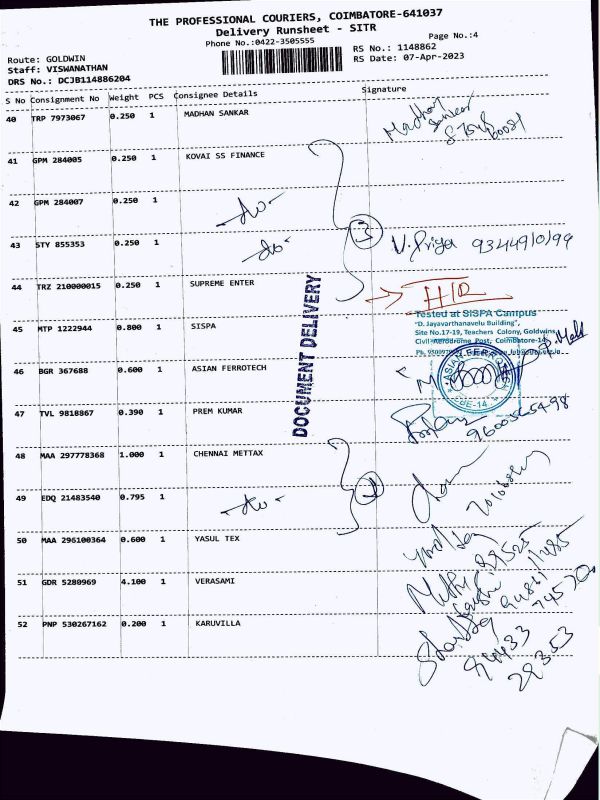 THE PROFESSIONAL COURIERS, COIMBATORE-641037
Delivery Runsheet - SITR
Phone No.:0422-3505555
Page No.:4
Route: GOLDWIN
RS No.: 1148862
Staff: VISWANATHAN
RS Date: 07-Apr-2023
DRS No.: DCJB114886204
S No Consignment No Weight PCS Consignee Details Signature
40 TRP 7973067 0.250 1 MADHAN SANKAR
Madhan
Sankar
41 GPM 284005 0.250 1 KOVAI SS FINANCE
42 GPM 284007 0.250 1 -do-
43 STY 855353 0.250 1 -do- 3 V. Priya 9344910199
44 TRZ 210000015 0.250 1 SUPREME ENTER H/O
45 MTP 1222944 0.800 1 SISPA
Tested at SISPA Campus
"D. Jayavarthanavelu Building",
Site No.17-19, Teachers Colony, Goldwins
Civil Aerodrome Post, Coimbatore-14
46 BGR 367688 0.600 1 ASIAN FERROTECH
47 TVL 9818867 0.390 1 PREM KUMAR
9600565498
DOCUMENT DELIVERY
48 MAA 297778368 1.000 1 CHENNAI METTAX
49 EDQ 21483540 0.795 1 -do-
50 MAA 296100364 0.600 1 YASUL TEX
51 GDR 5280969 4.100 1 VERASAMI
52 PNP 530267162 0.200 1 KARUVILLA
94433
28353